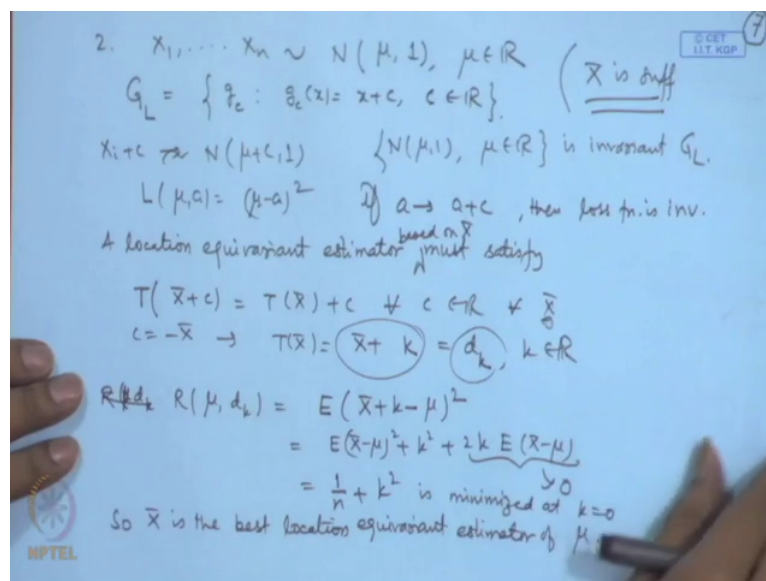 7
© CET
I.I.T. KGP
2. X₁, .... Xₙ ~ N(μ, 1), μ ∈ ℝ ( X̄ is suff
G_L = { g_c : g_c(x) = x+c, c ∈ ℝ }.
Xᵢ+c ~ N(μ+c, 1) {N(μ,1), μ ∈ ℝ} is invariant G_L.
L(μ,a) = (μ-a)² If a → a+c, then loss fn. is inv.
A location equivariant estimator based on X̄ must satisfy
T(X̄+c) = T(X̄) + c ∀ c ∈ ℝ ∀ X̄
c = -X̄ → T(X̄) = X̄ + k = d_k, k ∈ ℝ
R(μ, d_k) = E(X̄+k-μ)²
= E(X̄-μ)² + k² + 2k E(X̄-μ)
→0
= 1/n + k² is minimized at k=0
So X̄ is the best location equivariant estimator of μ.
NPTEL